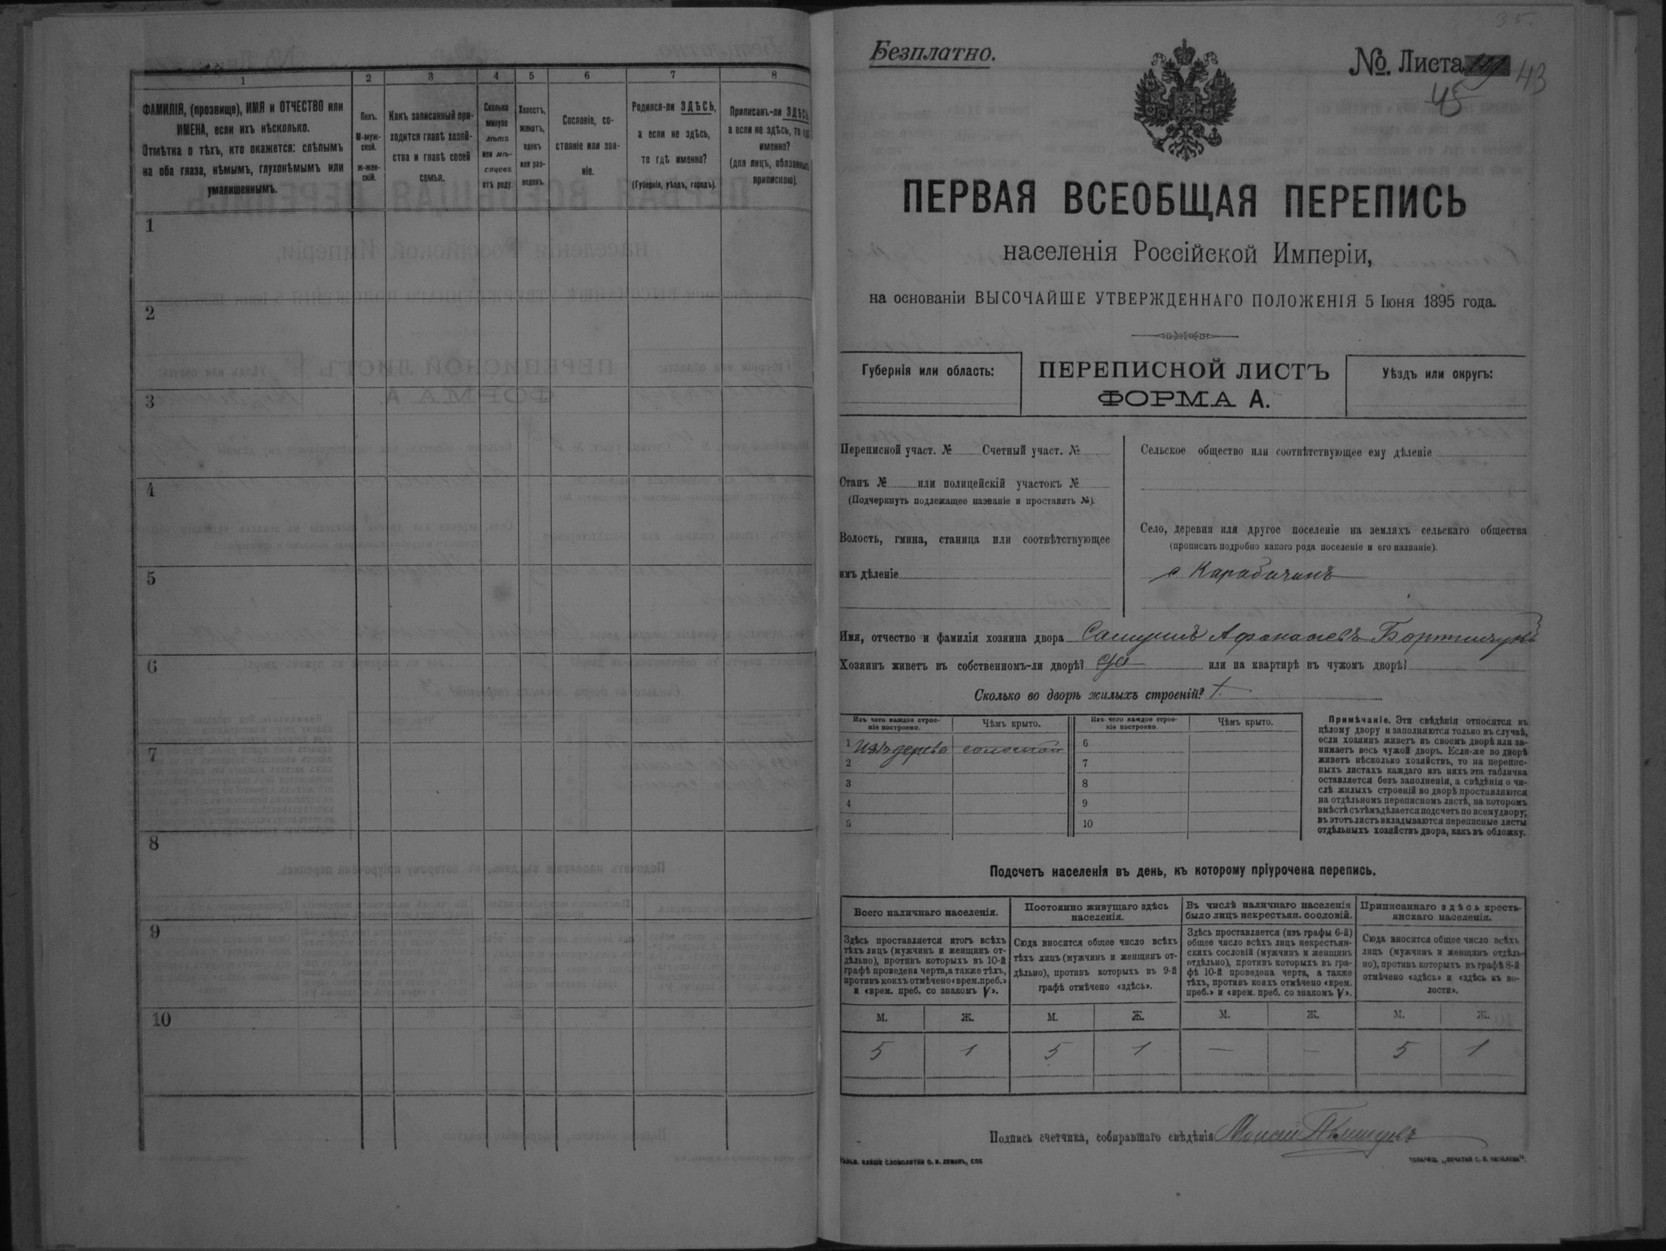 1 2 3 4 5 6 7 8
ФАМИЛІЯ, (прозвище), ИМЯ и ОТЧЕСТВО или
ИМЕНА, если ихъ нѣсколько.
Отмѣтка о тѣхъ, кто окажется: слѣпымъ
на оба глаза, нѣмымъ, глухонѣмымъ или
умалишеннымъ.
Полъ.
М-муж-
ской.
Ж-жен-
скій.
Какъ записанный при-
ходится главѣ хозяй-
ства и главѣ своей
семьи.
Сколько
минуло
лѣтъ
или мѣ-
сяцевъ
отъ роду.
Холостъ,
женатъ,
вдовъ
или раз-
веденъ.
Сословіе, со-
стояніе или зва-
ніе.
Родился-ли ЗДѢСЬ,
а если не здѣсь,
то гдѣ именно?
(Губернія, уѣздъ, городъ).
Приписанъ-ли ЗДѢСЬ,
а если не здѣсь, то гдѣ
именно?
(для лицъ, обязанныхъ
припискою).
1
2
3
4
5
6
7
8
9
10
35
Безплатно.
№ Листа 43
45
ПЕРВАЯ ВСЕОБЩАЯ ПЕРЕПИСЬ
населенія Россійской Имперіи,
на основаніи ВЫСОЧАЙШЕ УТВЕРЖДЕННАГО ПОЛОЖЕНІЯ 5 Іюня 1895 года.
Губернія или область:
ПЕРЕПИСНОЙ ЛИСТЪ
ФОРМА А.
Уѣздъ или округъ:
Переписной участ. № Счетный участ. №
Станъ № или полицейскій участокъ №
(Подчеркнуть подлежащее названіе и проставить №).
Волость, гмина, станица или соотвѣтствующее
имъ дѣленіе
Сельское общество или соотвѣтствующее ему дѣленіе
Село, деревня или другое поселеніе на земляхъ сельскаго общества
(прописать подробно какого рода поселеніе и его названіе).
с. Карабичинъ
Имя, отчество и фамилія хозяина двора Самуилъ Афонасіевъ
Хозяинъ живетъ въ собственномъ-ли дворѣ? или на квартирѣ въ чужомъ дворѣ?
Сколько во дворѣ жилыхъ строеній? 1
Изъ чего каждое строе-
ніе построено.
Чѣмъ крыто.
Изъ чего каждое строе-
ніе построено.
Чѣмъ крыто.
1 Изъ дерева соломой 6
2 7
3 8
4 9
5 10
Примѣчаніе. Эти свѣдѣнія относятся къ
цѣлому двору и заполняются только въ случаѣ,
если хозяинъ живетъ въ своемъ дворѣ или за-
нимаетъ весь чужой дворъ. Если-же во дворѣ
живетъ нѣсколько хозяйствъ, то на перепис-
ныхъ листахъ каждаго изъ нихъ эта табличка
оставляется безъ заполненія, а свѣдѣнія о чи-
слѣ жилыхъ строеній во дворѣ проставляются
на отдѣльномъ переписномъ листѣ, на которомъ
вмѣстѣ съ тѣмъ дѣлается подсчетъ по всему двору;
въ этотъ листъ вкладываются переписные листы
отдѣльныхъ хозяйствъ двора, какъ въ обложку.
Подсчетъ населенія въ день, къ которому пріурочена перепись.
Всего наличнаго населенія.
Постоянно живущаго здѣсь
населенія.
Въ числѣ наличнаго населенія
было лицъ некрестьян. сословій.
Приписаннаго здѣсь кресть-
янскаго населенія.
Здѣсь проставляется итогъ всѣхъ
тѣхъ лицъ (мужчинъ и женщинъ от-
дѣльно), противъ которыхъ въ 10-й
графѣ проведена черта, а также тѣхъ,
противъ коихъ отмѣчено «врем. преб.»
и «врем. преб. со знакомъ V».
Сюда вносится общее число всѣхъ
тѣхъ лицъ (мужчинъ и женщинъ от-
дѣльно), противъ которыхъ въ 9-й
графѣ отмѣчено «здѣсь».
Здѣсь проставляется (изъ графы 6-й)
общее число всѣхъ лицъ некрестьян-
скихъ сословій (мужчинъ и женщинъ
отдѣльно), противъ которыхъ въ гра-
фѣ 10-й проведена черта, а также
тѣхъ, противъ коихъ отмѣчено «врем.
преб.» и «врем. преб. со знакомъ V».
Сюда вносится общее число всѣхъ
лицъ (мужчинъ и женщинъ отдѣль-
но), противъ которыхъ въ графѣ 8-й
отмѣчено «здѣсь» и «здѣсь къ во-
лости».
М. Ж. М. Ж. М. Ж. М. Ж.
5 1 5 1 — — 5 1
Подпись счетчика, собиравшаго свѣдѣнія Моисей